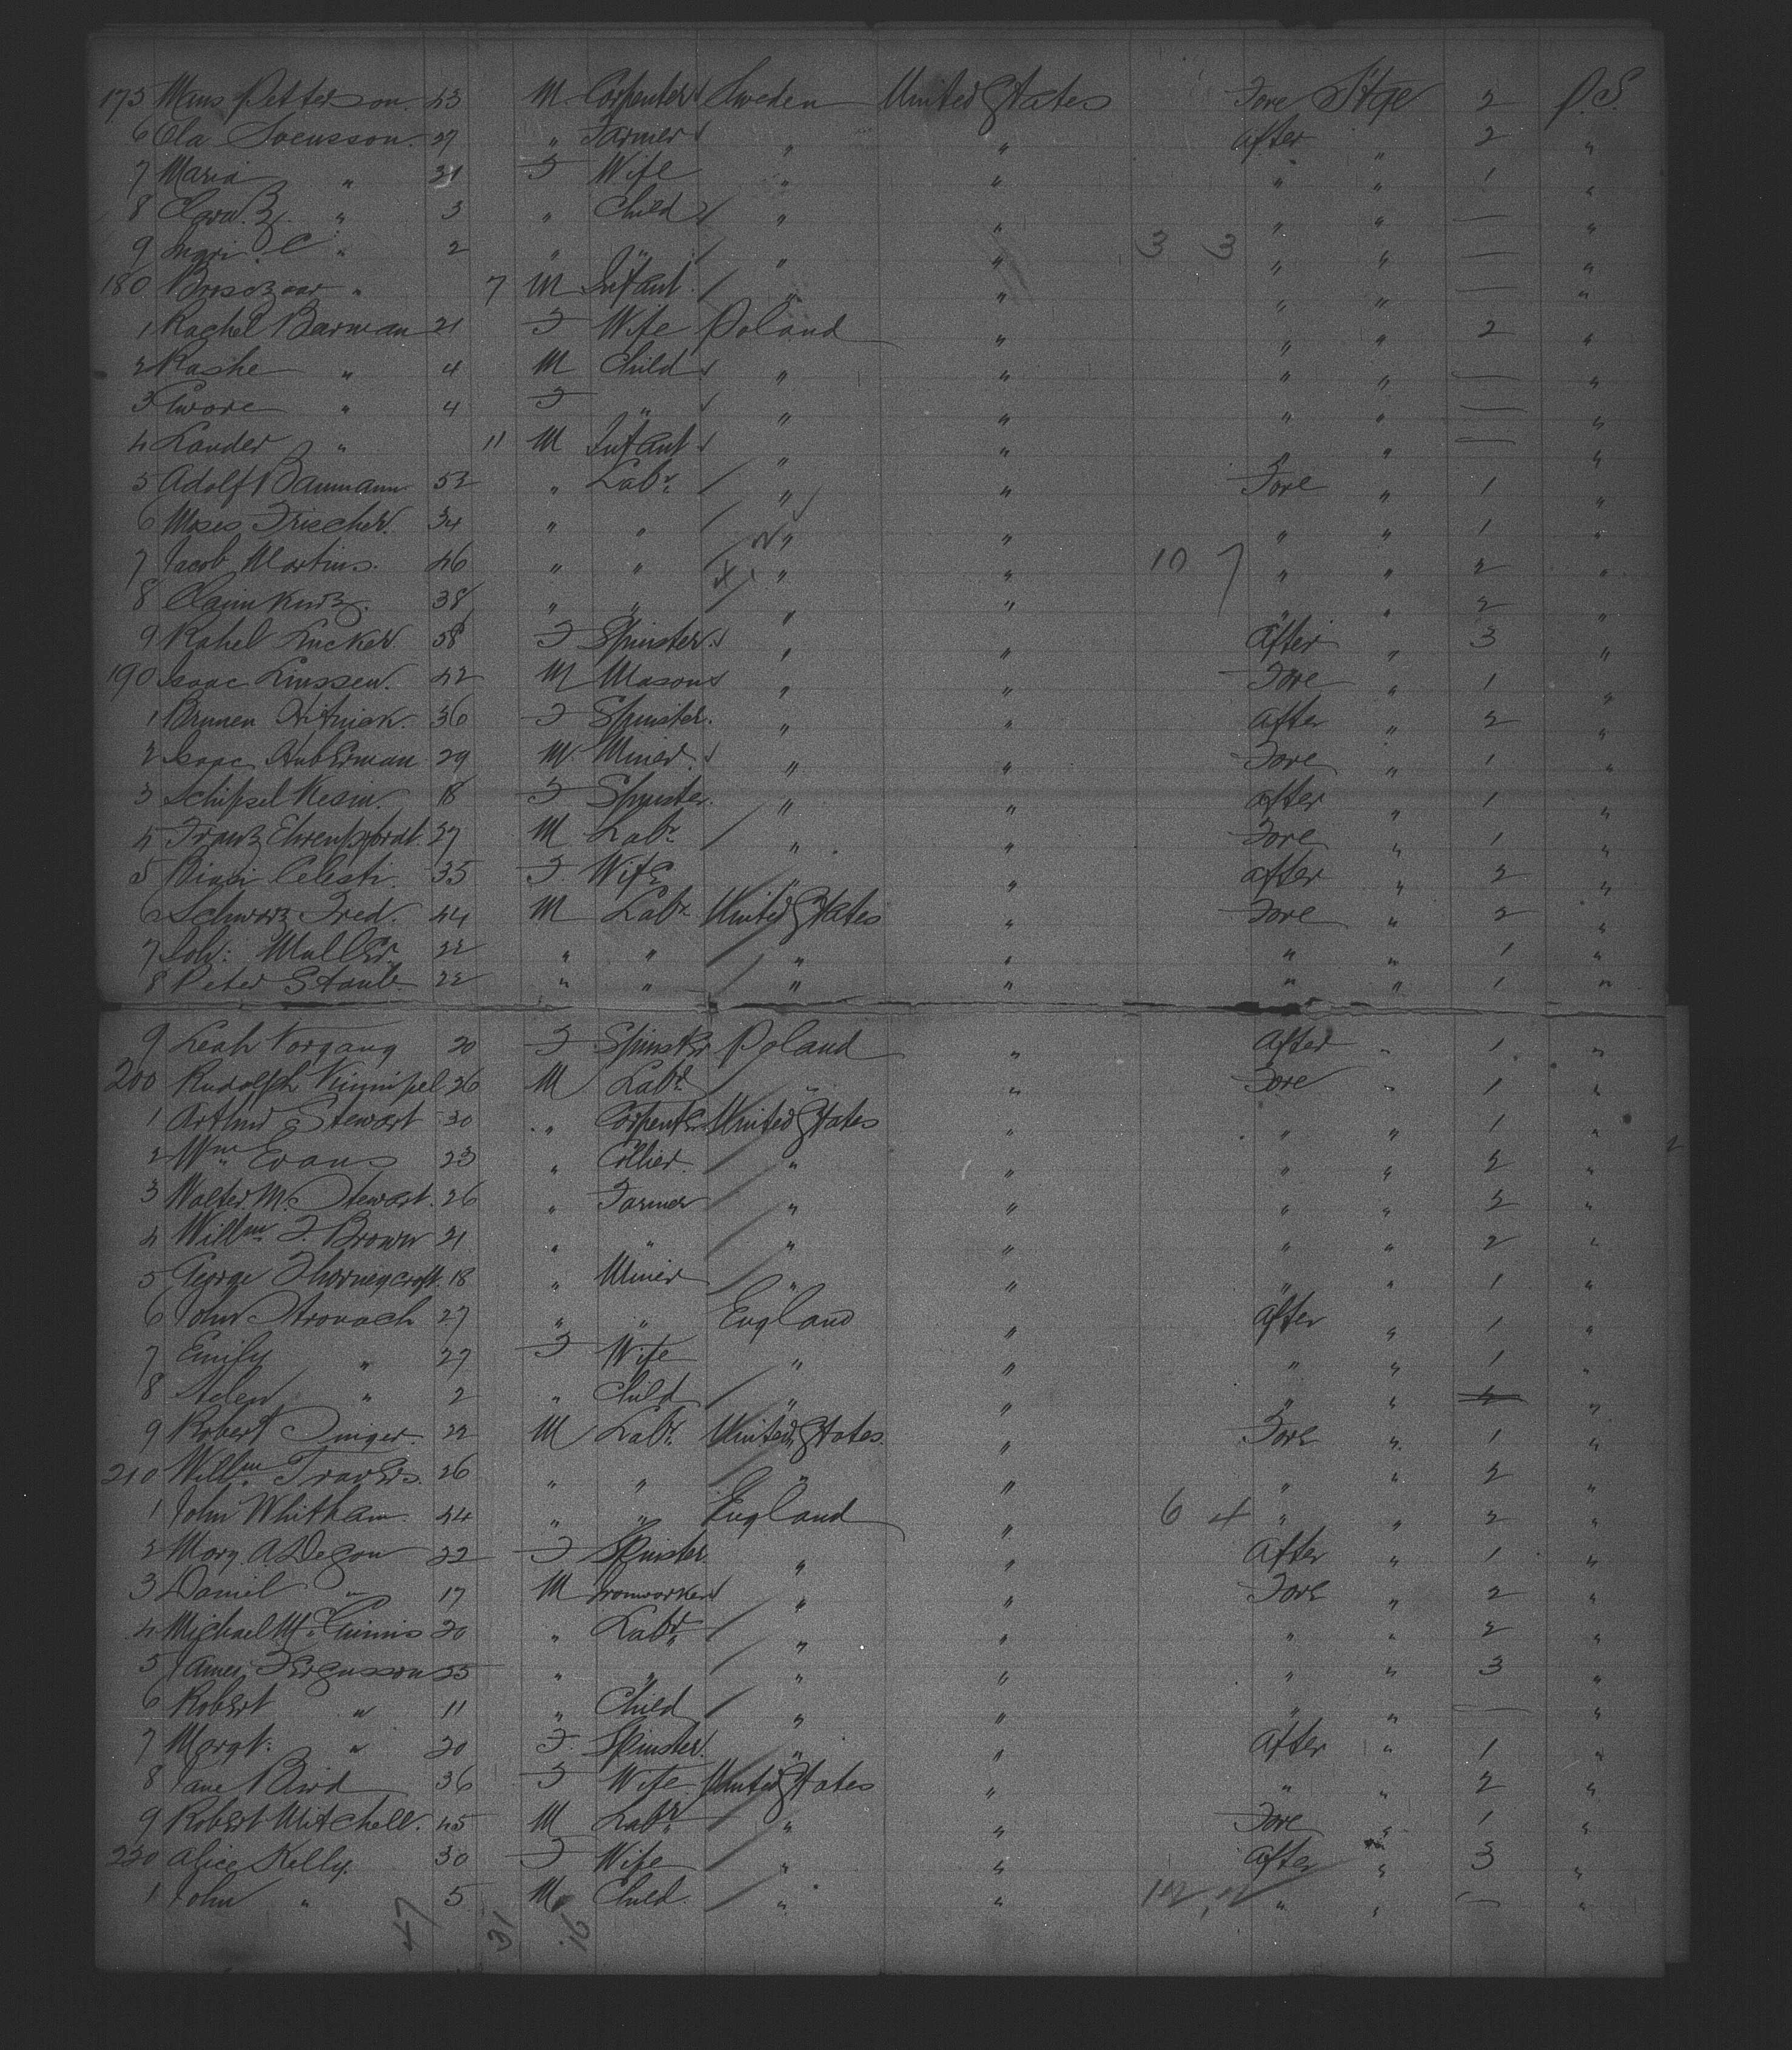 175 Mans Petterson 43 M Carpenter Sweden United States Fore Stge 2 P.S.
6 Ola Svensson 27 " Farmer " " After " 2 "
7 Maria " 21 F Wife " " " " 1 "
8 Clara Z " 3 " Child " " " " — "
9 Ingri C " 2 " " " " 3 3 " " — "
180 " 7 M Infant " " " " — "
1 Rachel Barman 21 F Wife Poland " " " 2 "
2 Rashe " 4 M Child " " " " — "
3 " 4 F " " " " " — "
4 Lander " 11 M Infant " " " " — "
5 Adolf Baumann 52 " Labr " " Fore " 1 "
6 Moses Frischer 34 " " " " " " 1 "
7 Jacob Martins 46 " " " " 10 7 " " 2 "
8 Claim Kurz 38 " " " " " " 2 "
9 Rahel Lucker 58 F Spinster " " After " 3 "
190 Isaac Linssen 42 M Mason " " Fore " 1 "
1 Brunen 36 F Spinster " " After " 2 "
2 Isaac Huberman 29 M Miner " " Fore " 1 "
3 Schipsel Kesin 18 F Spinster " " After " 1 "
4 Franz 27 M Labr " " Fore " 1 "
5 Celesti 35 F Wife " " After " 2 "
6 Schwarz Fred. 44 M Labr United States " Fore " 2 "
7 Muller 22 " " " " " " 1 "
8 Peter Staub 22 " " " " " " 1 "
9 Leah Vorgang 20 F Spinster Poland " After " 1 "
200 Rudolph 26 M Labr " " Fore " 1 "
1 Arthur Stewart 30 " Carpenter United States " " " 1 "
2 Wm Evans 23 " Collier " " " " 2 "
3 Walter M. Stewart 26 " Farmer " " " " 2 "
4 Willm F. Brown 21 " " " " " " 2 "
5 George Thorneycroft 18 " Miner " " " " 1 "
6 John Stronach 27 " " England " After " 1 "
7 Emily " 27 F Wife " " " " 1 "
8 " 2 " Child " " " " "
9 Robert Singer 22 M Labr United States " Fore " 1 "
210 Willm Travers 26 " " " " " " 2 "
1 John Whitham 44 " " England " 6 4 " " 2 "
2 Mary A. Degan 22 F Spinster " " After " 1 "
3 Daniel " 17 M Ironworker " " Fore " 2 "
4 Michael McGinnis 20 " Labr " " " " 2 "
5 James Fergusson 25 " " " " " " 3 "
6 Robert " 11 " Child " " " " — "
7 Margt. " 20 F Spinster " " After " 1 "
8 Jane Bird 36 F Wife United States " " " 2 "
9 Robert Mitchell 45 M Labr " " Fore " 1 "
220 Alice Kelly 30 F Wife " " After " 3 "
1 John " 5 M Child " " " " — "
47 31 16